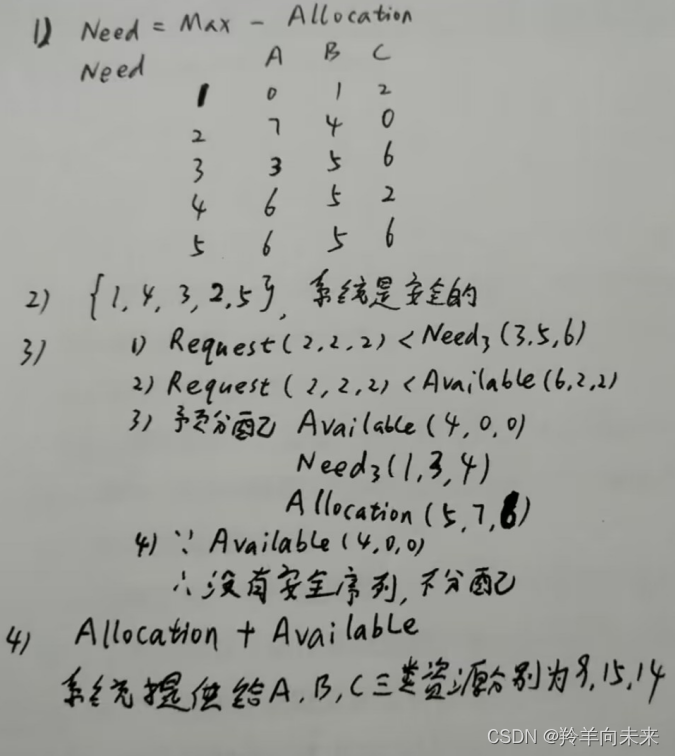 1) Need = Max - Allocation
Need A B C
1 0 1 2
2 7 4 0
3 3 5 6
4 6 5 2
5 6 5 6
2) {1,4,3,2,5}, 系统是安全的
3) 1) Request(2,2,2) < Need₃(3,5,6)
2) Request(2,2,2) < Available(6,2,2)
3) 予分配 Available(4,0,0)
Need₃(1,3,4)
Allocation(5,7,6)
4) ∵ Available(4,0,0)
∴没有安全序列,不分配
4) Allocation + Available
系统提供给A,B,C三类资源分别为9,15,14
CSDN @羚羊向未来